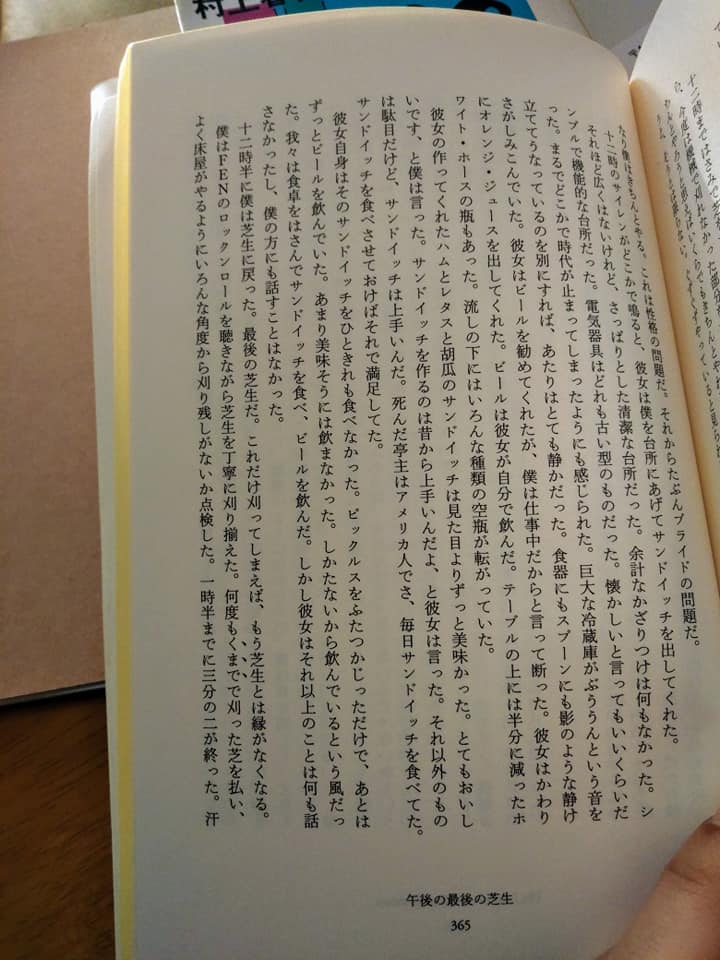 村上春
なり僕はきちんとやる。これは性格の問題だ。それからたぶんプライドの問題だ。
十二時のサイレンがどこかで鳴ると、彼女は僕を台所にあげてサンドイッチを出してくれた。
それほど広くはないけれど、さっぱりとした清潔な台所だった。余計なかざりつけは何もなかった。シ
ンプルで機能的な台所だった。電気器具はどれも古い型のものだった。懐かしいと言ってもいいくらいだ
った。まるでどこかで時代が止まってしまったようにも感じられた。巨大な冷蔵庫がぶううんという音を
立ててうなっているのを別にすれば、あたりはとても静かだった。食器にもスプーンにも影のような静け
さがしみこんでいた。彼女はビールを勧めてくれたが、僕は仕事中だからと言って断った。彼女はかわり
にオレンジ・ジュースを出してくれた。ビールは彼女が自分で飲んだ。テーブルの上には半分に減ったホ
ワイト・ホースの瓶もあった。流しの下にはいろんな種類の空瓶が転がっていた。
彼女の作ってくれたハムとレタスと胡瓜のサンドイッチは見た目よりずっと美味かった。とてもおいし
いです、と僕は言った。サンドイッチを作るのは昔から上手いんだよ、と彼女は言った。それ以外のもの
は駄目だけど、サンドイッチは上手いんだ。死んだ亭主はアメリカ人でさ、毎日サンドイッチを食べてた。
サンドイッチを食べさせておけばそれで満足してた。
彼女自身はそのサンドイッチをひときれも食べなかった。ピックルスをふたつかじっただけで、あとは
ずっとビールを飲んでいた。あまり美味そうには飲まなかった。しかたないから飲んでいるという風だっ
た。我々は食卓をはさんでサンドイッチを食べ、ビールを飲んだ。しかし彼女はそれ以上のことは何も話
さなかったし、僕の方にも話すことはなかった。
十二時半に僕は芝生に戻った。最後の芝生だ。これだけ刈ってしまえば、もう芝生とは縁がなくなる。
僕はFENのロックンロールを聴きながら芝生を丁寧に刈り揃えた。何度もくまでで刈った芝を払い、
よく床屋がやるようにいろんな角度から刈り残しがないか点検した。一時半までに三分の二が終った。汗
午後の最後の芝生
365